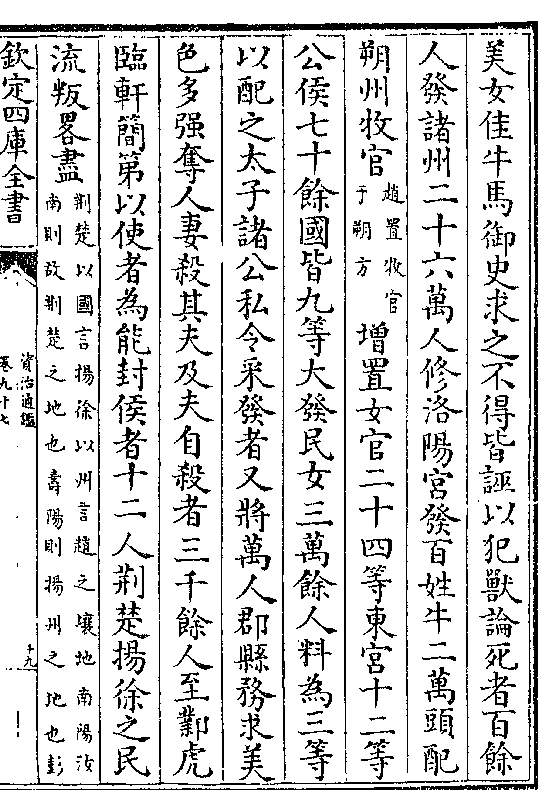 美女佳牛馬御史求之不得皆誣以犯獸論死者百餘
人發諸州二十六萬人修洛陽宮發百姓牛二萬頭配
朔州牧官趙置牧官于朔方増置女官二十四等東宮十二等
公侯七十餘國皆九等大發民女三萬餘人料為三等
以配之太子諸公私令采發者又將萬人郡縣務求美
色多强奪人妻殺其夫及夫自殺者三千餘人至鄴虎
臨軒簡第以使者為能封侯者十二人荆楚揚徐之民
流叛畧盡荆楚以國言揚徐以州言趙之壤地南陽汝南則故荆楚之地也壽陽則揚州之地也彭
欽定四庫全書
資治通鑑
卷九十七
十九